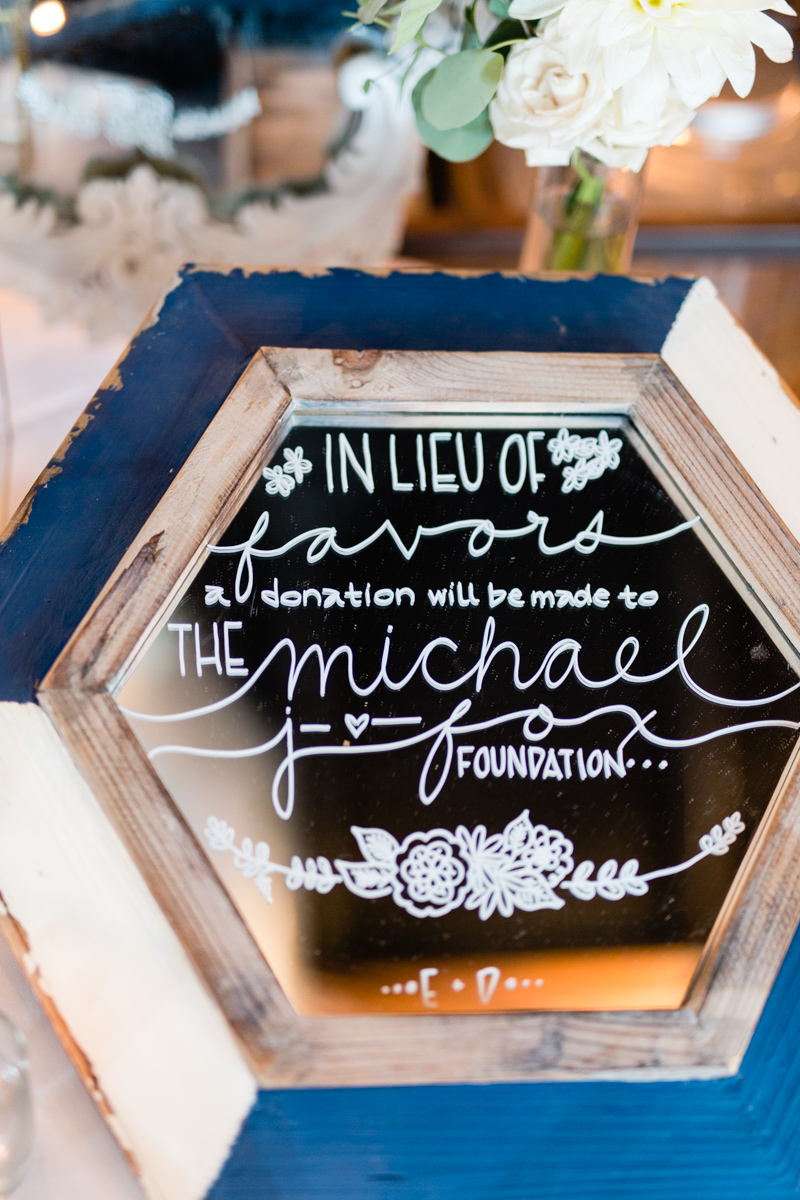 IN LIEU OF
favors
a donation will be made to
THE michael
j fox
FOUNDATION...
...E + D...